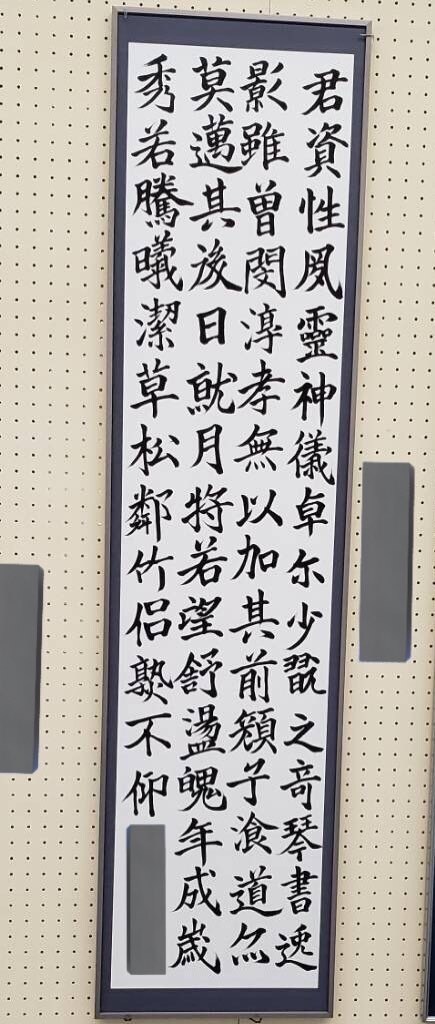 君資性夙靈神儀卓尓少翫之竒琴書逸
影雖曽閔淳孝無以加其前顏子湌道亦
莫邁其後日就月將若望舒盪魄年成歲
秀若騰曦潔草松鄰竹侶熟不仰